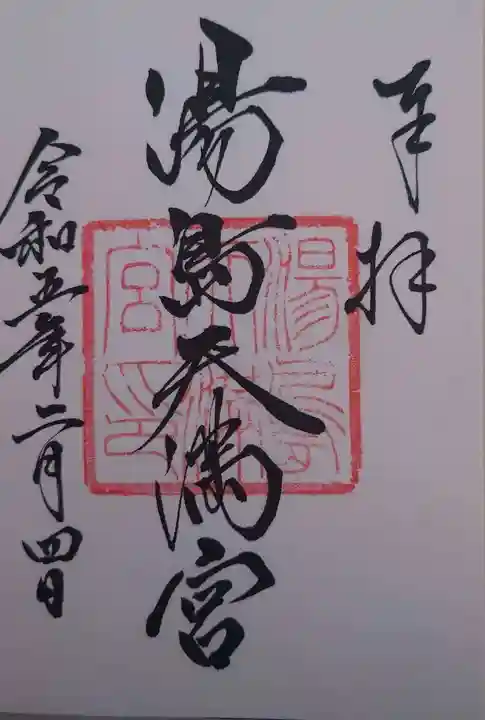 奉拝
湯島天満宮
令和五年二月四日
湯島天満宮印